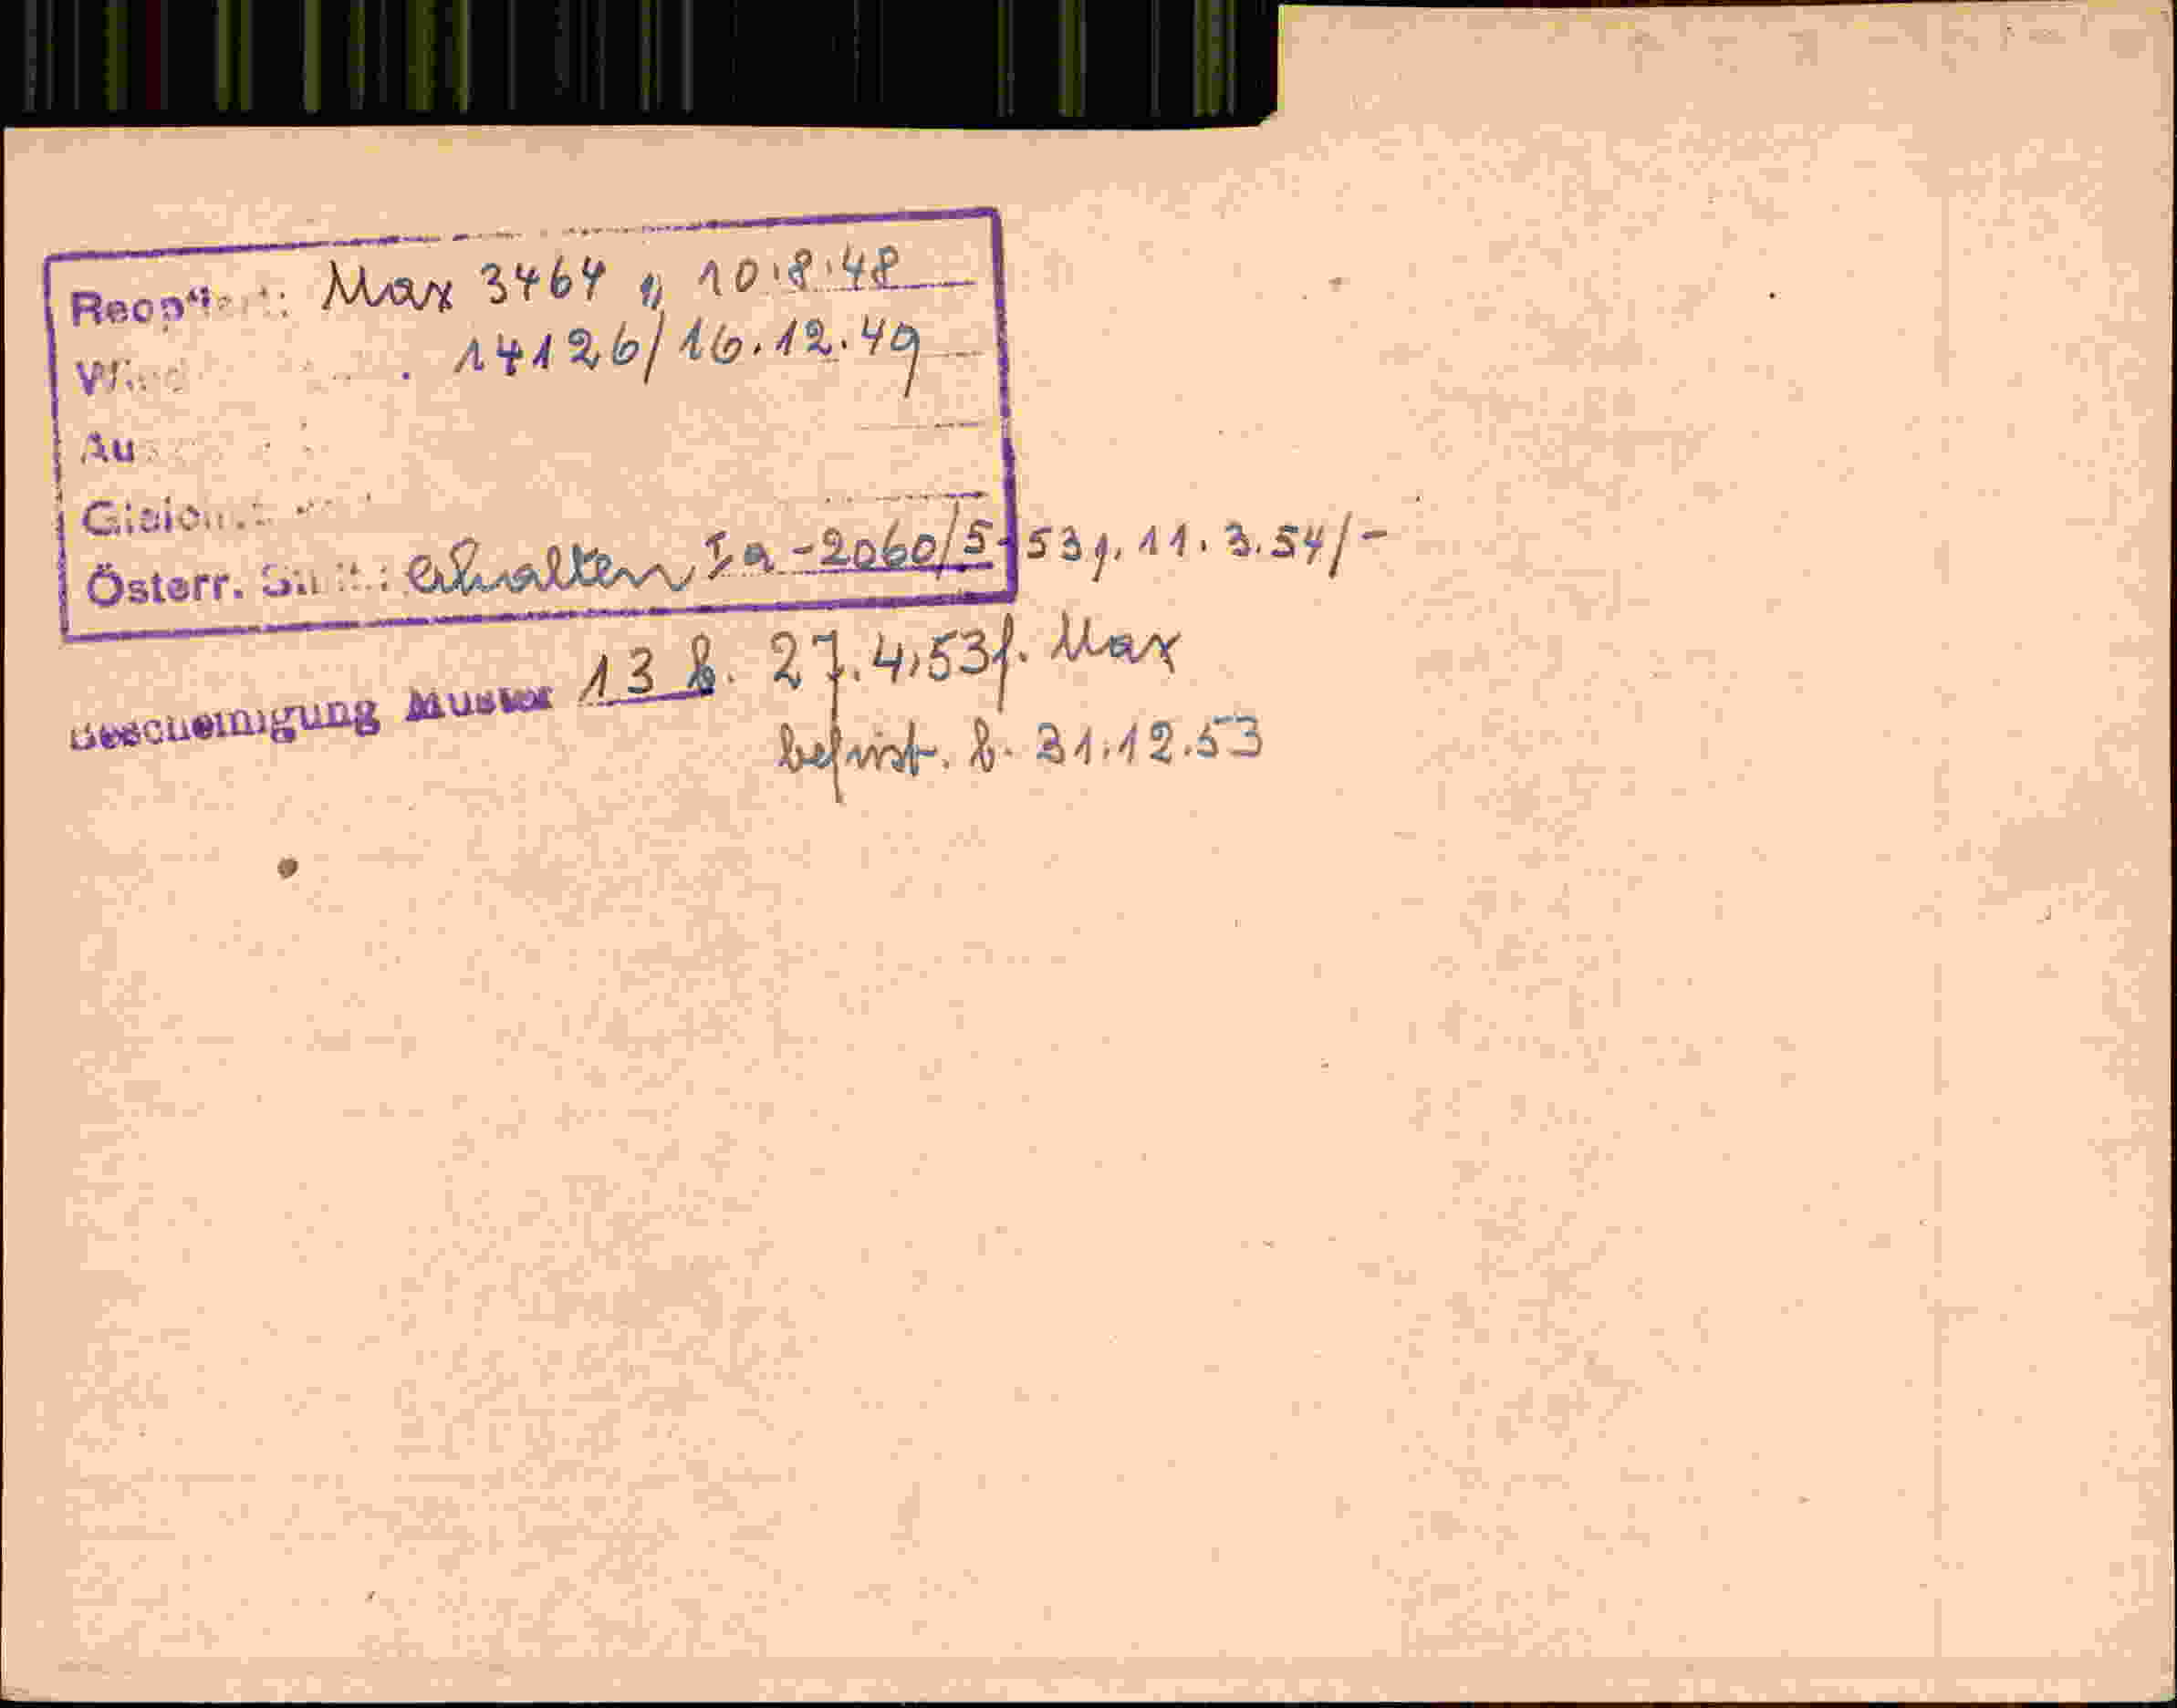 Max 3464, 10.8.48
14126/16.12.49
Au
Österr. erhalten Ia-2060/5-53 f. 11.3.54/-
Bescheinigung Muster 13 b. 27.4.53 f. Max
befrist. b. 31.12.53